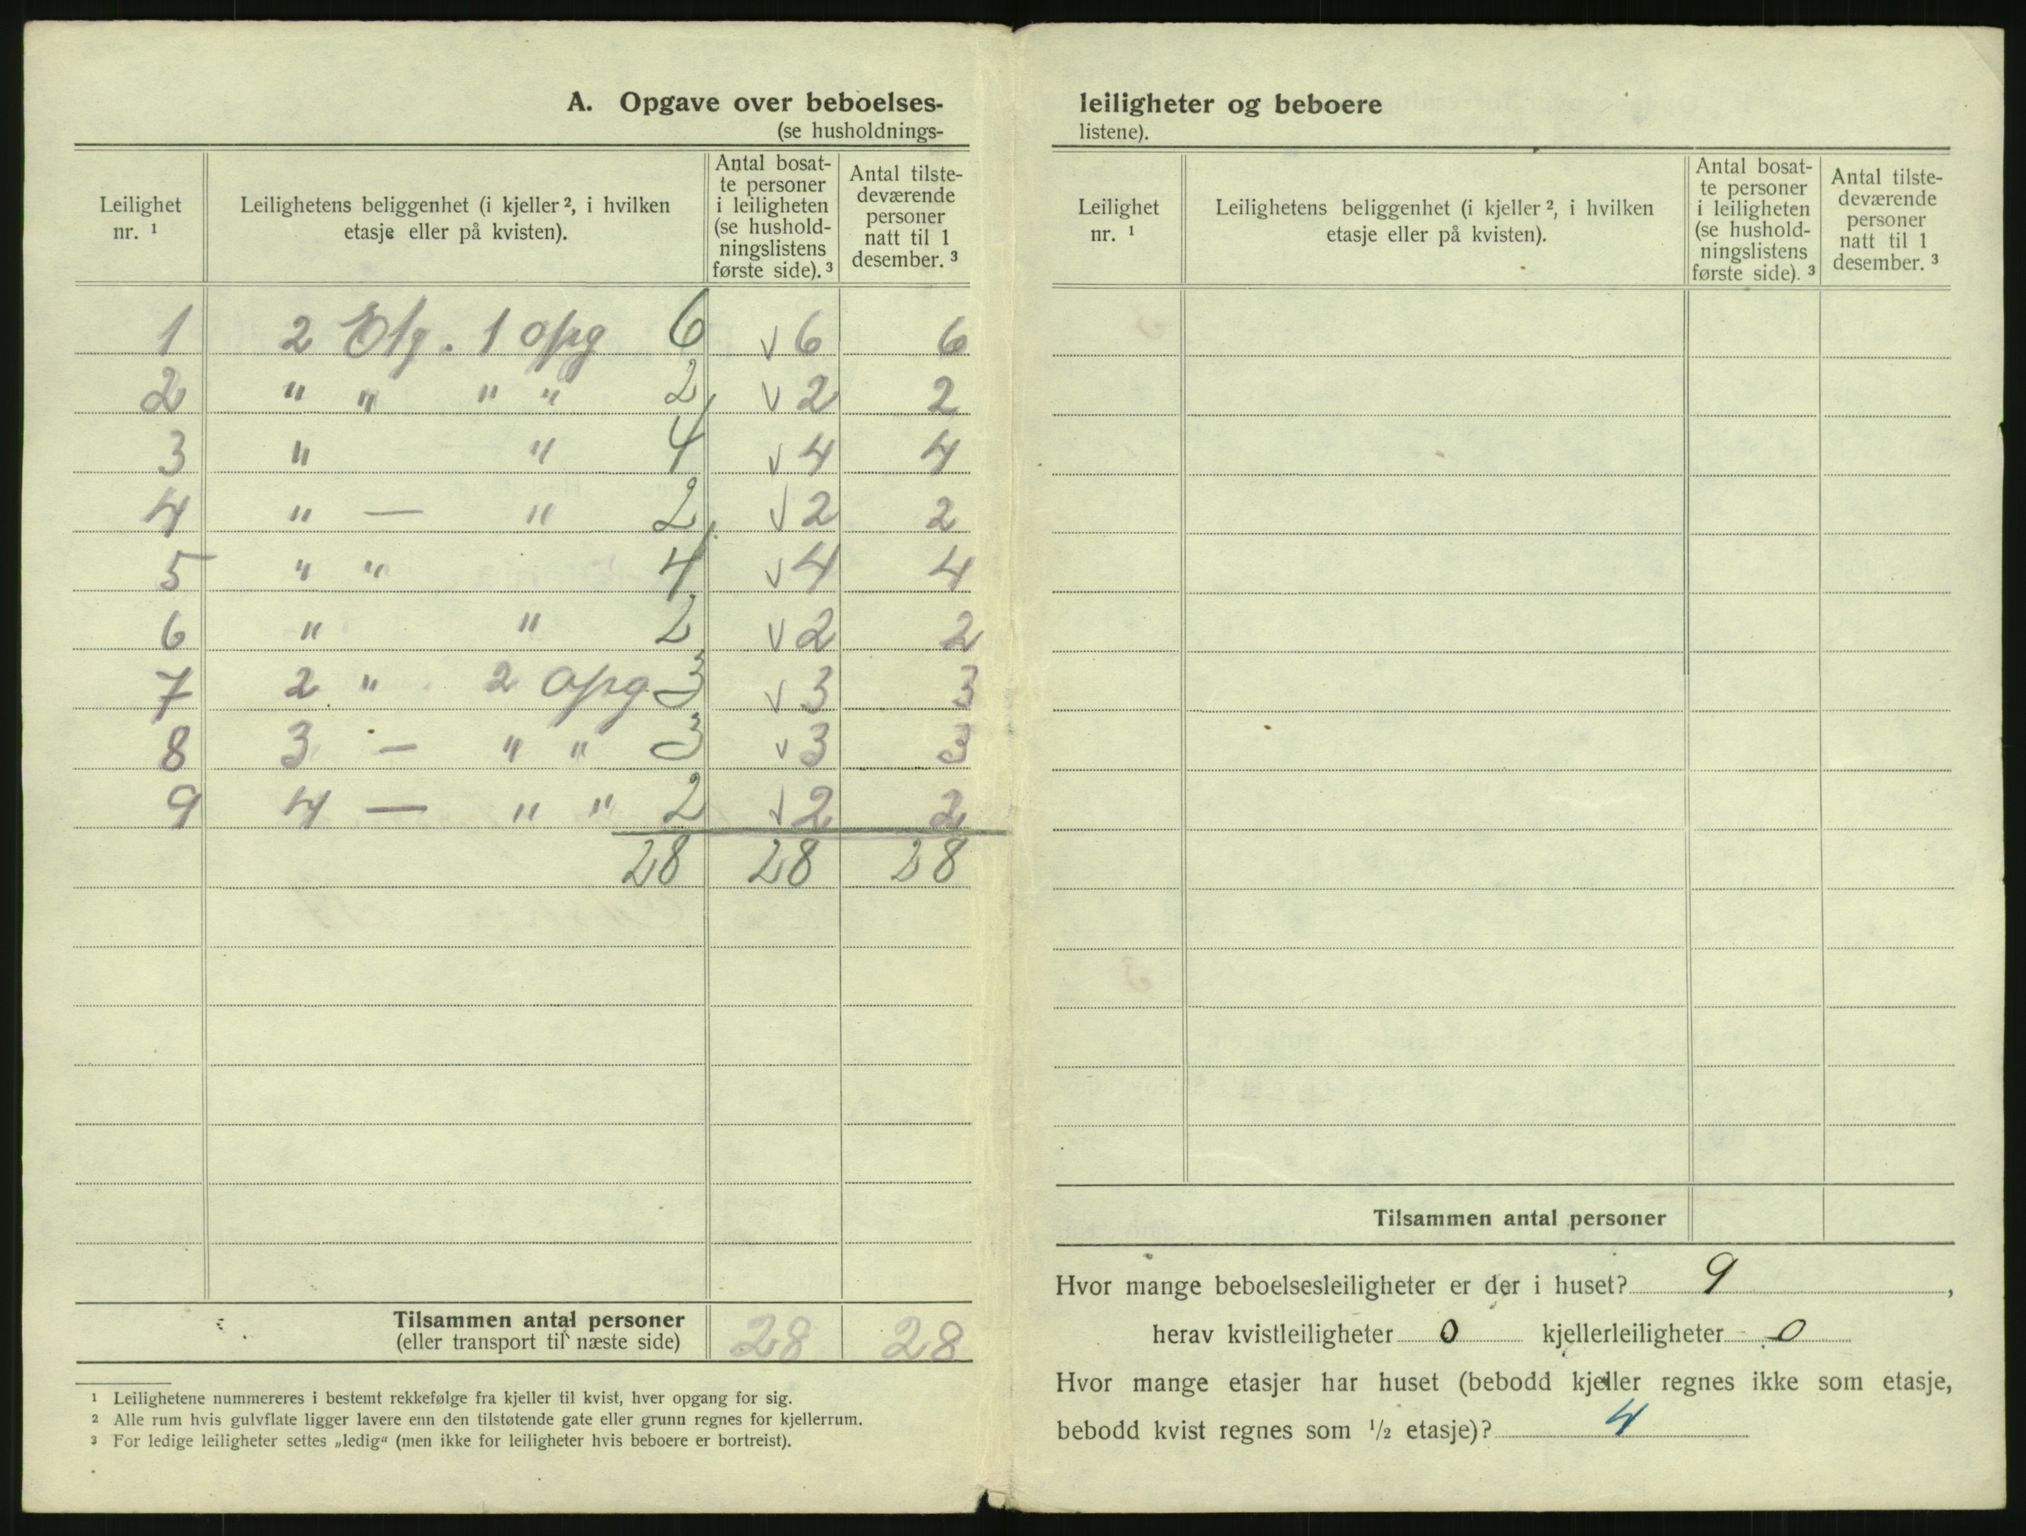 A. Opgave over beboelses-
(se husholdnings-
Leilighet nr. ¹
Leilighetens beliggenhet (i kjeller ², i hvilken etasje eller på kvisten).
Antal bosat-
te personer
i leiligheten
(se hushold-
ningslistens
første side). ³
Antal tilste-
deværende
personer
natt til 1
desember. ³
1 2 Etg. 1 opg 6 √ 6 6
2 " " " " 2 √ 2 2
3 " " 4 √ 4 4
4 " — " 2 √ 2 2
5 " " 4 √ 4 4
6 " " 2 √ 2 2
7 2 " 2 opg 3 √ 3 3
8 3 — " " 3 √ 3 3
9 4 — " " 2 √ 2 2
28 28 28
Tilsammen antal personer
(eller transport til næste side) 28 28
¹ Leilighetene nummereres i bestemt rekkefølge fra kjeller til kvist, hver opgang for sig.
² Alle rum hvis gulvflate ligger lavere enn den tilstøtende gate eller grunn regnes for kjellerrum.
³ For ledige leiligheter settes „ledig“ (men ikke for leiligheter hvis beboere er bortreist).
leiligheter og beboere
listene).
Leilighet nr. ¹
Leilighetens beliggenhet (i kjeller ², i hvilken etasje eller på kvisten).
Antal bosat-
te personer
i leiligheten
(se hushold-
ningslistens
første side). ³
Antal tilste-
deværende
personer
natt til 1
desember. ³
Tilsammen antal personer
Hvor mange beboelsesleiligheter er der i huset? 9 ,
herav kvistleiligheter 0 kjellerleiligheter 0
Hvor mange etasjer har huset (bebodd kjeller regnes ikke som etasje,
bebodd kvist regnes som ½ etasje)? 4